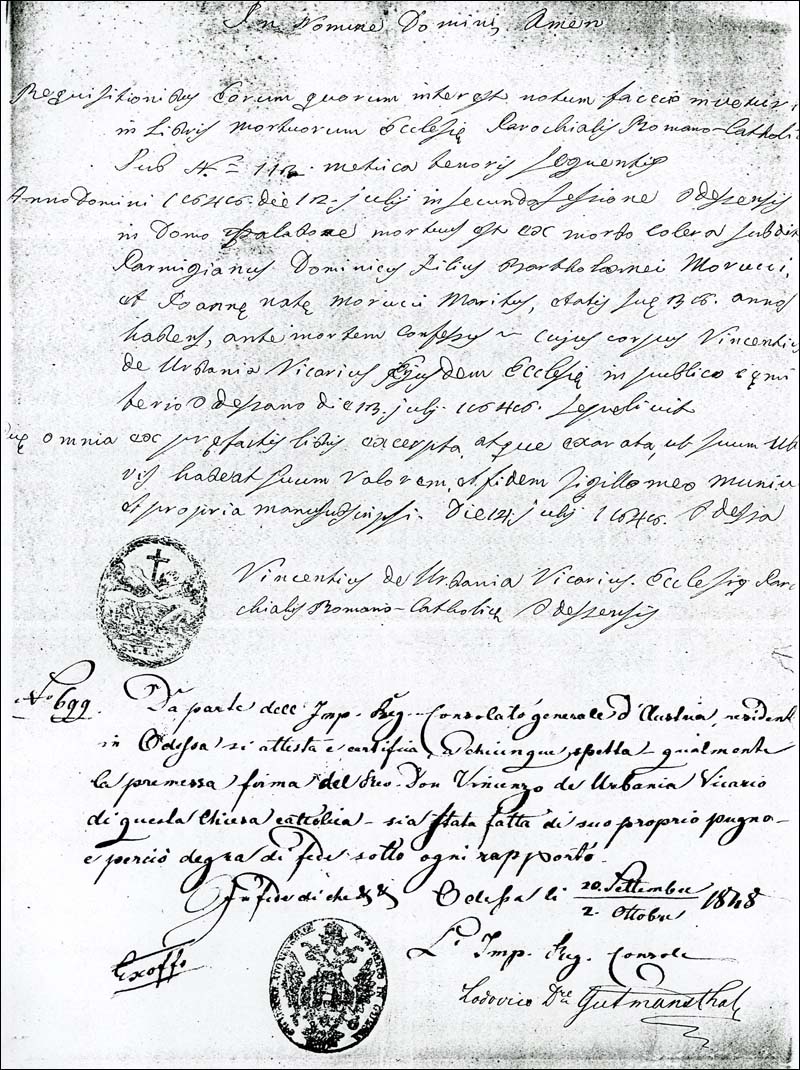 In Nomine Domini Amen
Requisitionibus eorum quorum interest notum faccio
in Libris mortuorum Ecclesię Parochialis Romano-Catholi
Sub Nº 112. metrica tenoris sequentis
Anno Domini 1848. die 12. julij in secunda sessione Odessensis
in Domo mortuus est ex morbo colera subdit
Parmigianus Dominicus Filius Bartholomei Morucci,
et Joannę natę Morucci Maritus, etatis suę annos
habens, ante mortem confessus cujus corpus Vincentius
de Urbania Vicarius Ejusdem Ecclesię in publico cęmi
terio Odessano die 13. julj 1848. sepelivit
quę omnia ex pręfactis libris excerpta, atque exarata, ut suum
vis habeat suum valorem, et fidem sigillo meo muniv
et propria manu subscripsi. Die 14. julij 1848. Odessa
Vincentius de Urbania Vicarius. Ecclesię Paro
chialis Romano-Catholicę Odessensis
Nº 699. Da parte dell Imp. Reg. Consolato generale d'Austria resident
in Odessa si attesta e certifica, a chiunque spetta qualmente
la premessa firma del Don Vincenzo de Urbania Vicario
di questa Chiesa cattolica - sia stata fatta di suo proprio pugno -
e perciò degna di fede sotto ogni rapporto.
In fede di che Odessa li 20. Settembre
2. Ottobre 1848
L'Imp. Reg. Console
Ex offo
Lodovico Gutmansthal